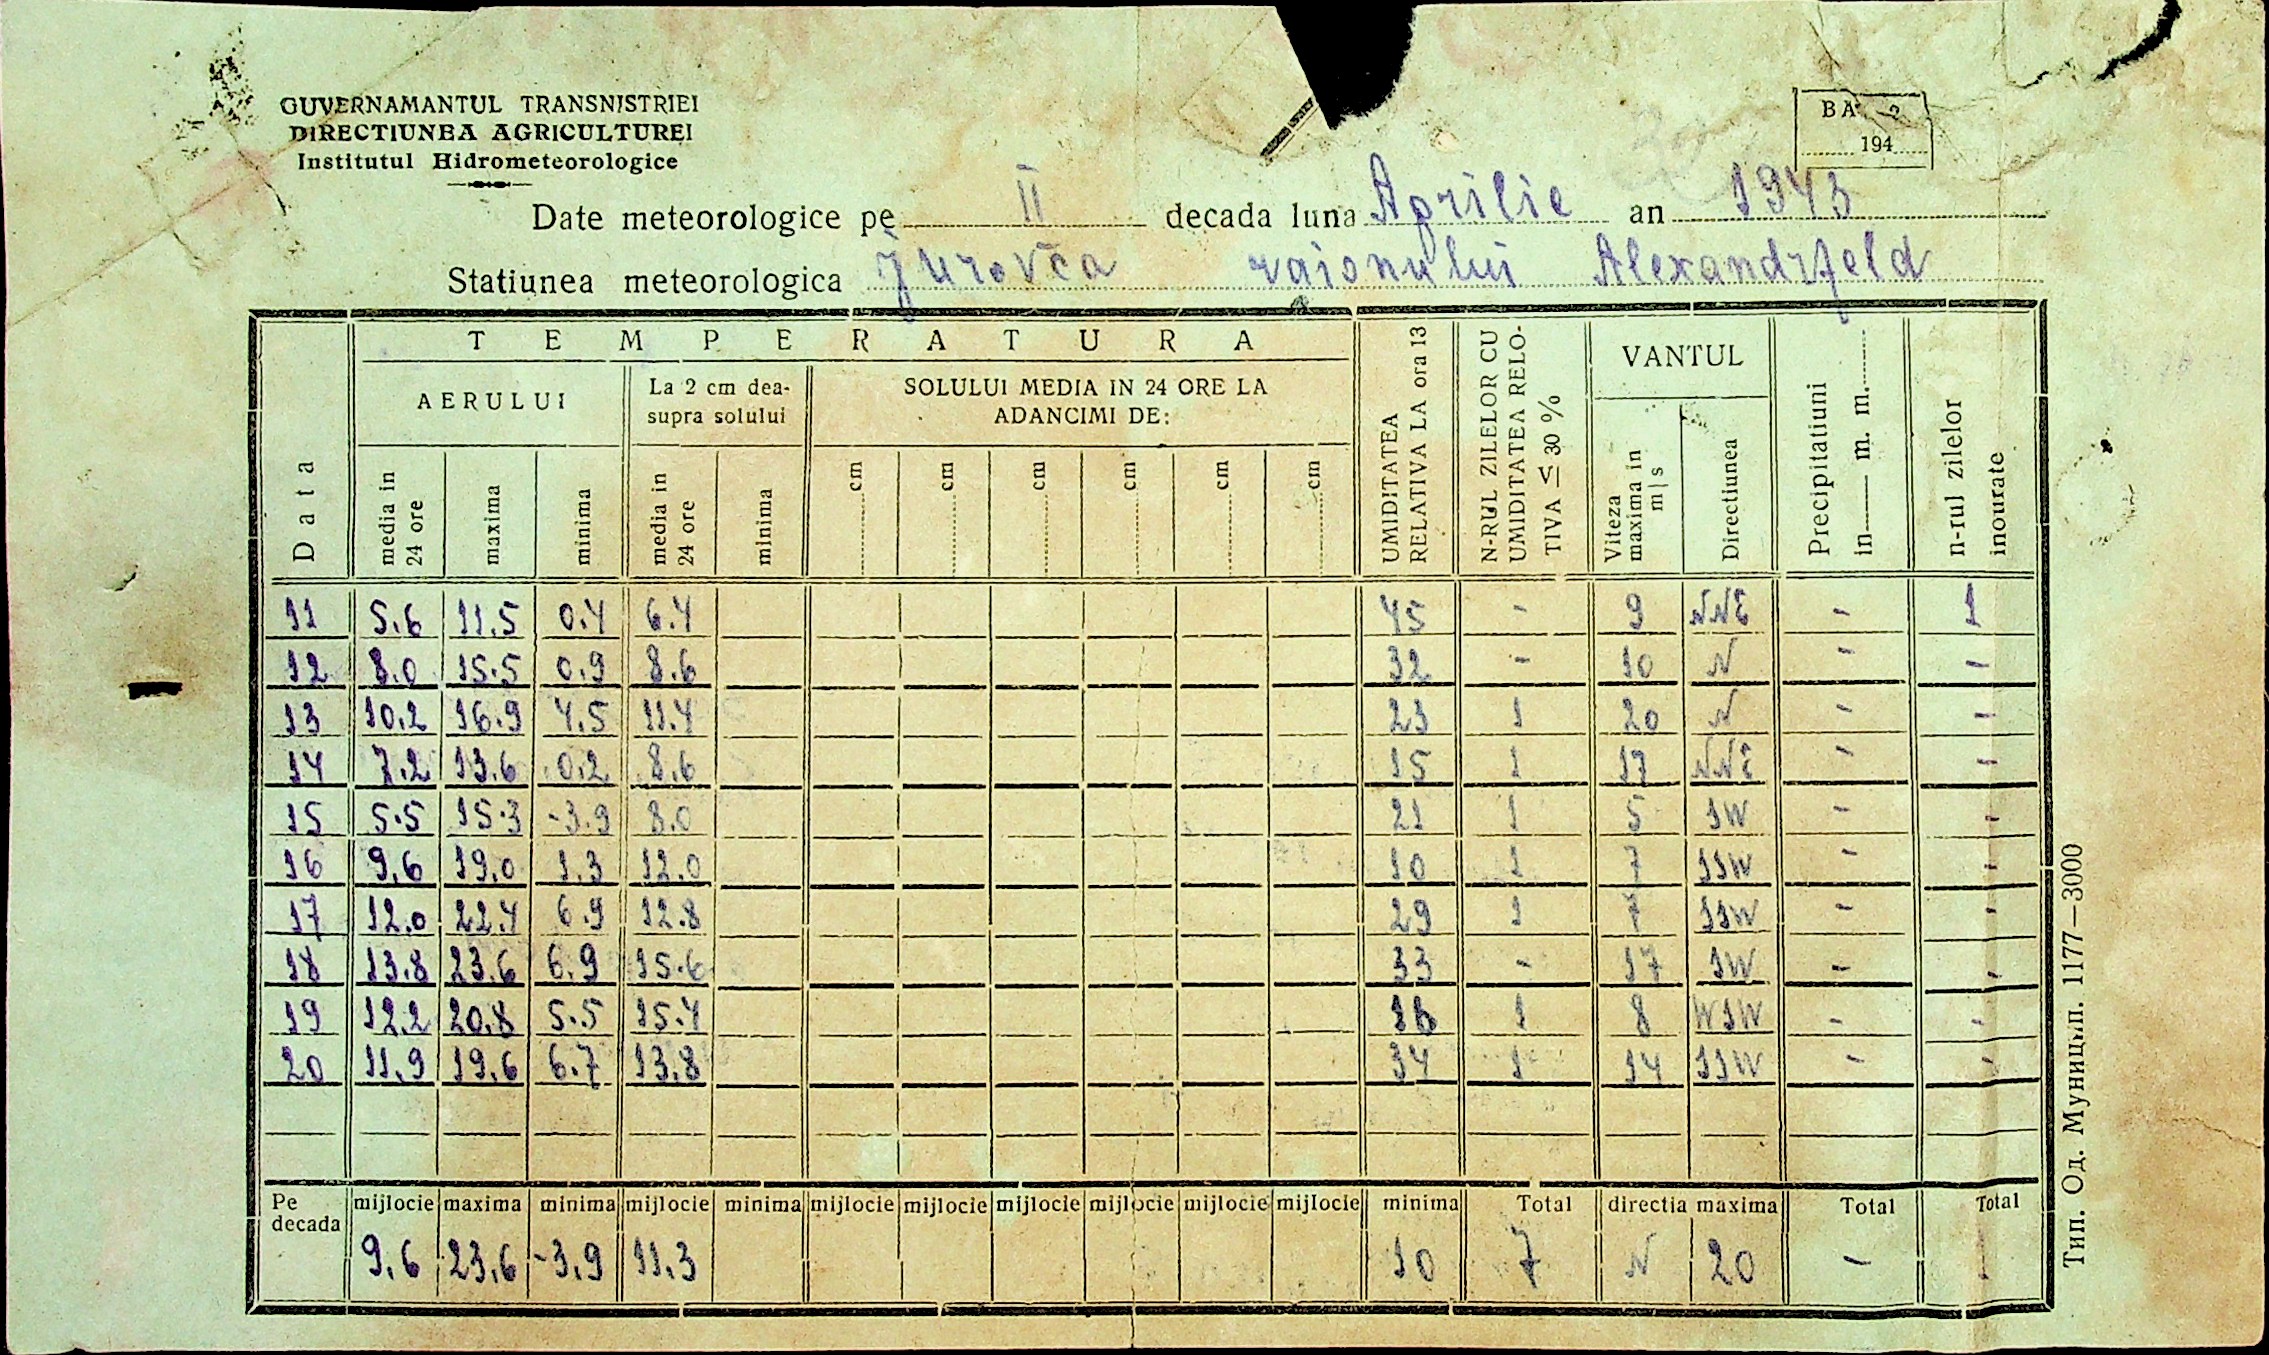 GUVERNAMANTUL TRANSNISTRIEI
DIRECTIUNEA AGRICULTUREI
Institutul Hidrometeorologice
BA 2
194
Date meteorologice pe II decada luna Aprilie an 1943
Statiunea meteorologica Jurovca raionului Alexandrfeld
Data
TEMPERATURA
AERULUI
media in 24 ore
maxima
minima
La 2 cm dea-
supra solului
media in 24 ore
minima
SOLULUI MEDIA IN 24 ORE LA
ADANCIMI DE:
cm cm cm cm cm cm
UMIDITATEA
RELATIVA LA ora 13
N-RUL ZILELOR CU
UMIDITATEA RELO-
TIVA ≤ 30 %
VANTUL
Viteza
maxima in
m|s
Directiunea
Precipitatiuni
in m. m.
n-rul zilelor
inourate
11 5.6 11.5 0.4 6.4 45 - 9 NNE - 1
12 8.0 15.5 0.9 8.6 32 - 10 N - -
13 10.2 16.9 4.5 11.4 23 1 20 N - -
14 7.2 13.6 0.2 8.6 15 1 17 NNE - -
15 5.5 15.3 -3.9 8.0 21 1 5 SW - -
16 9.6 19.0 1.3 12.0 10 1 7 SSW - -
17 12.0 22.4 6.9 12.8 29 1 7 SSW - -
18 13.8 23.6 6.9 15.6 33 - 17 SW - -
19 12.2 20.8 5.5 15.4 16 1 8 WSW - -
20 11.9 19.6 6.7 13.8 34 1 14 SSW - -
Pe
decada
mijlocie maxima minima mijlocie minima mijlocie mijlocie mijlocie mijlocie mijlocie mijlocie minima Total directia maxima Total Total
9.6 23.6 -3.9 11.3 10 7 N 20 - 1
Тип. Од. Муницып. 1177—3000